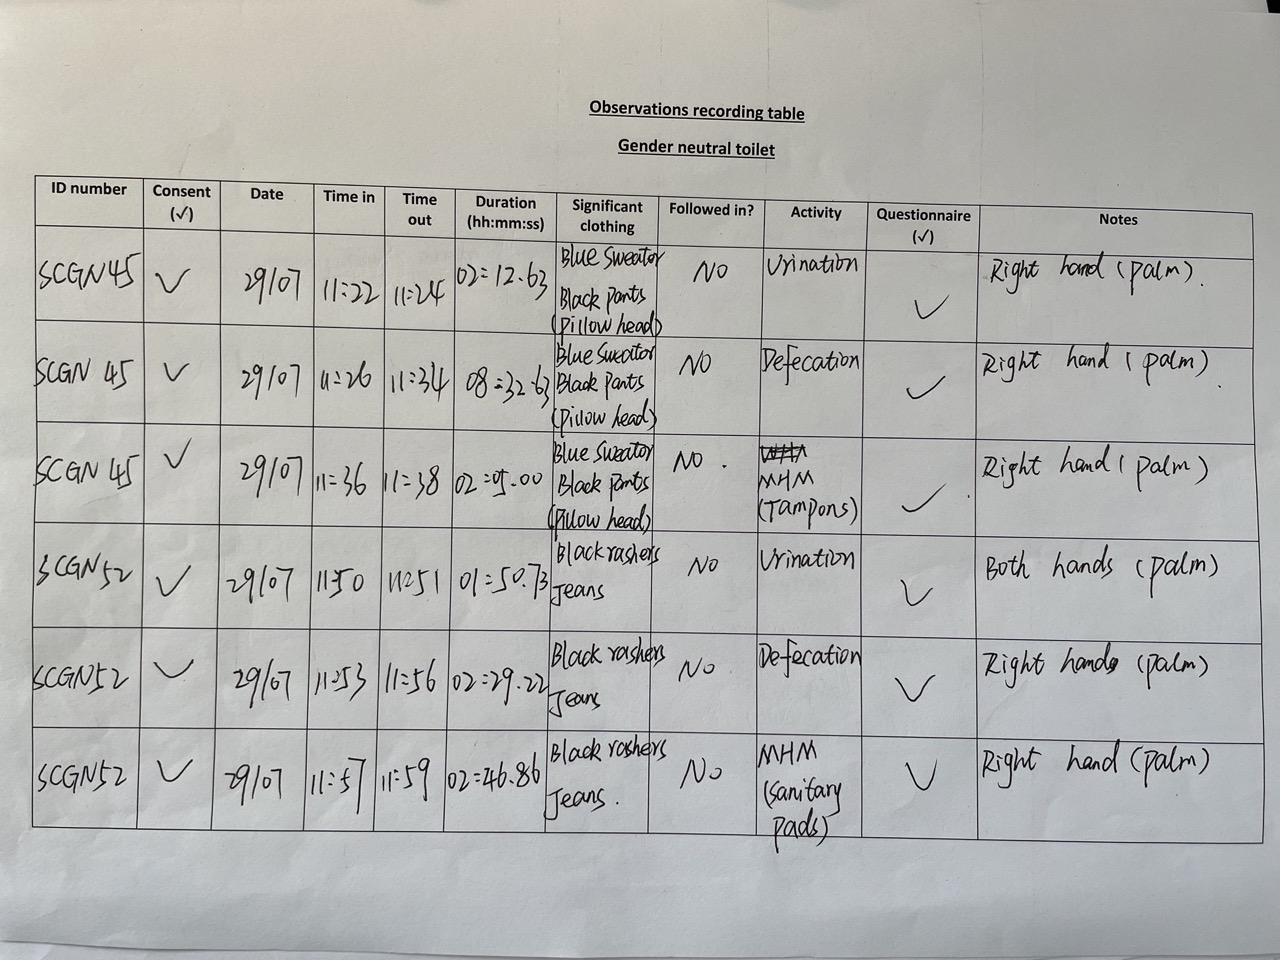 Observations recording table
Gender neutral toilet
ID number Consent (√) Date Time in Time out Duration (hh:mm:ss) Significant clothing Followed in? Activity Questionnaire (√) Notes
SCGN45 ✓ 29/07 11:22 11:24 02:12.63 Blue Sweator Black Pants (Pillow head) NO Urination ✓ Right hand (palm).
SCGN 45 ✓ 29/07 11:26 11:34 08:32.63 Blue Sweator Black Pants (Pillow head) NO Defecation ✓ Right hand (palm).
SCGN 45 ✓ 29/07 11:36 11:38 02:05.00 Blue Sweator Black Pants (Pillow head) NO. MHM (Tampons) ✓ Right hand (palm)
SCGN52 ✓ 29/07 11:50 11:51 01:50.73 Black rashers Jeans No Urination ✓ Both hands (palm)
SCGN52 ✓ 29/07 11:53 11:56 02:29.22 Black rashers Jeans No Defecation ✓ Right hands (palm)
SCGN52 ✓ 29/07 11:57 11:59 02:46.86 Black rashers Jeans. No MHM (Sanitary pads) ✓ Right hand (palm)